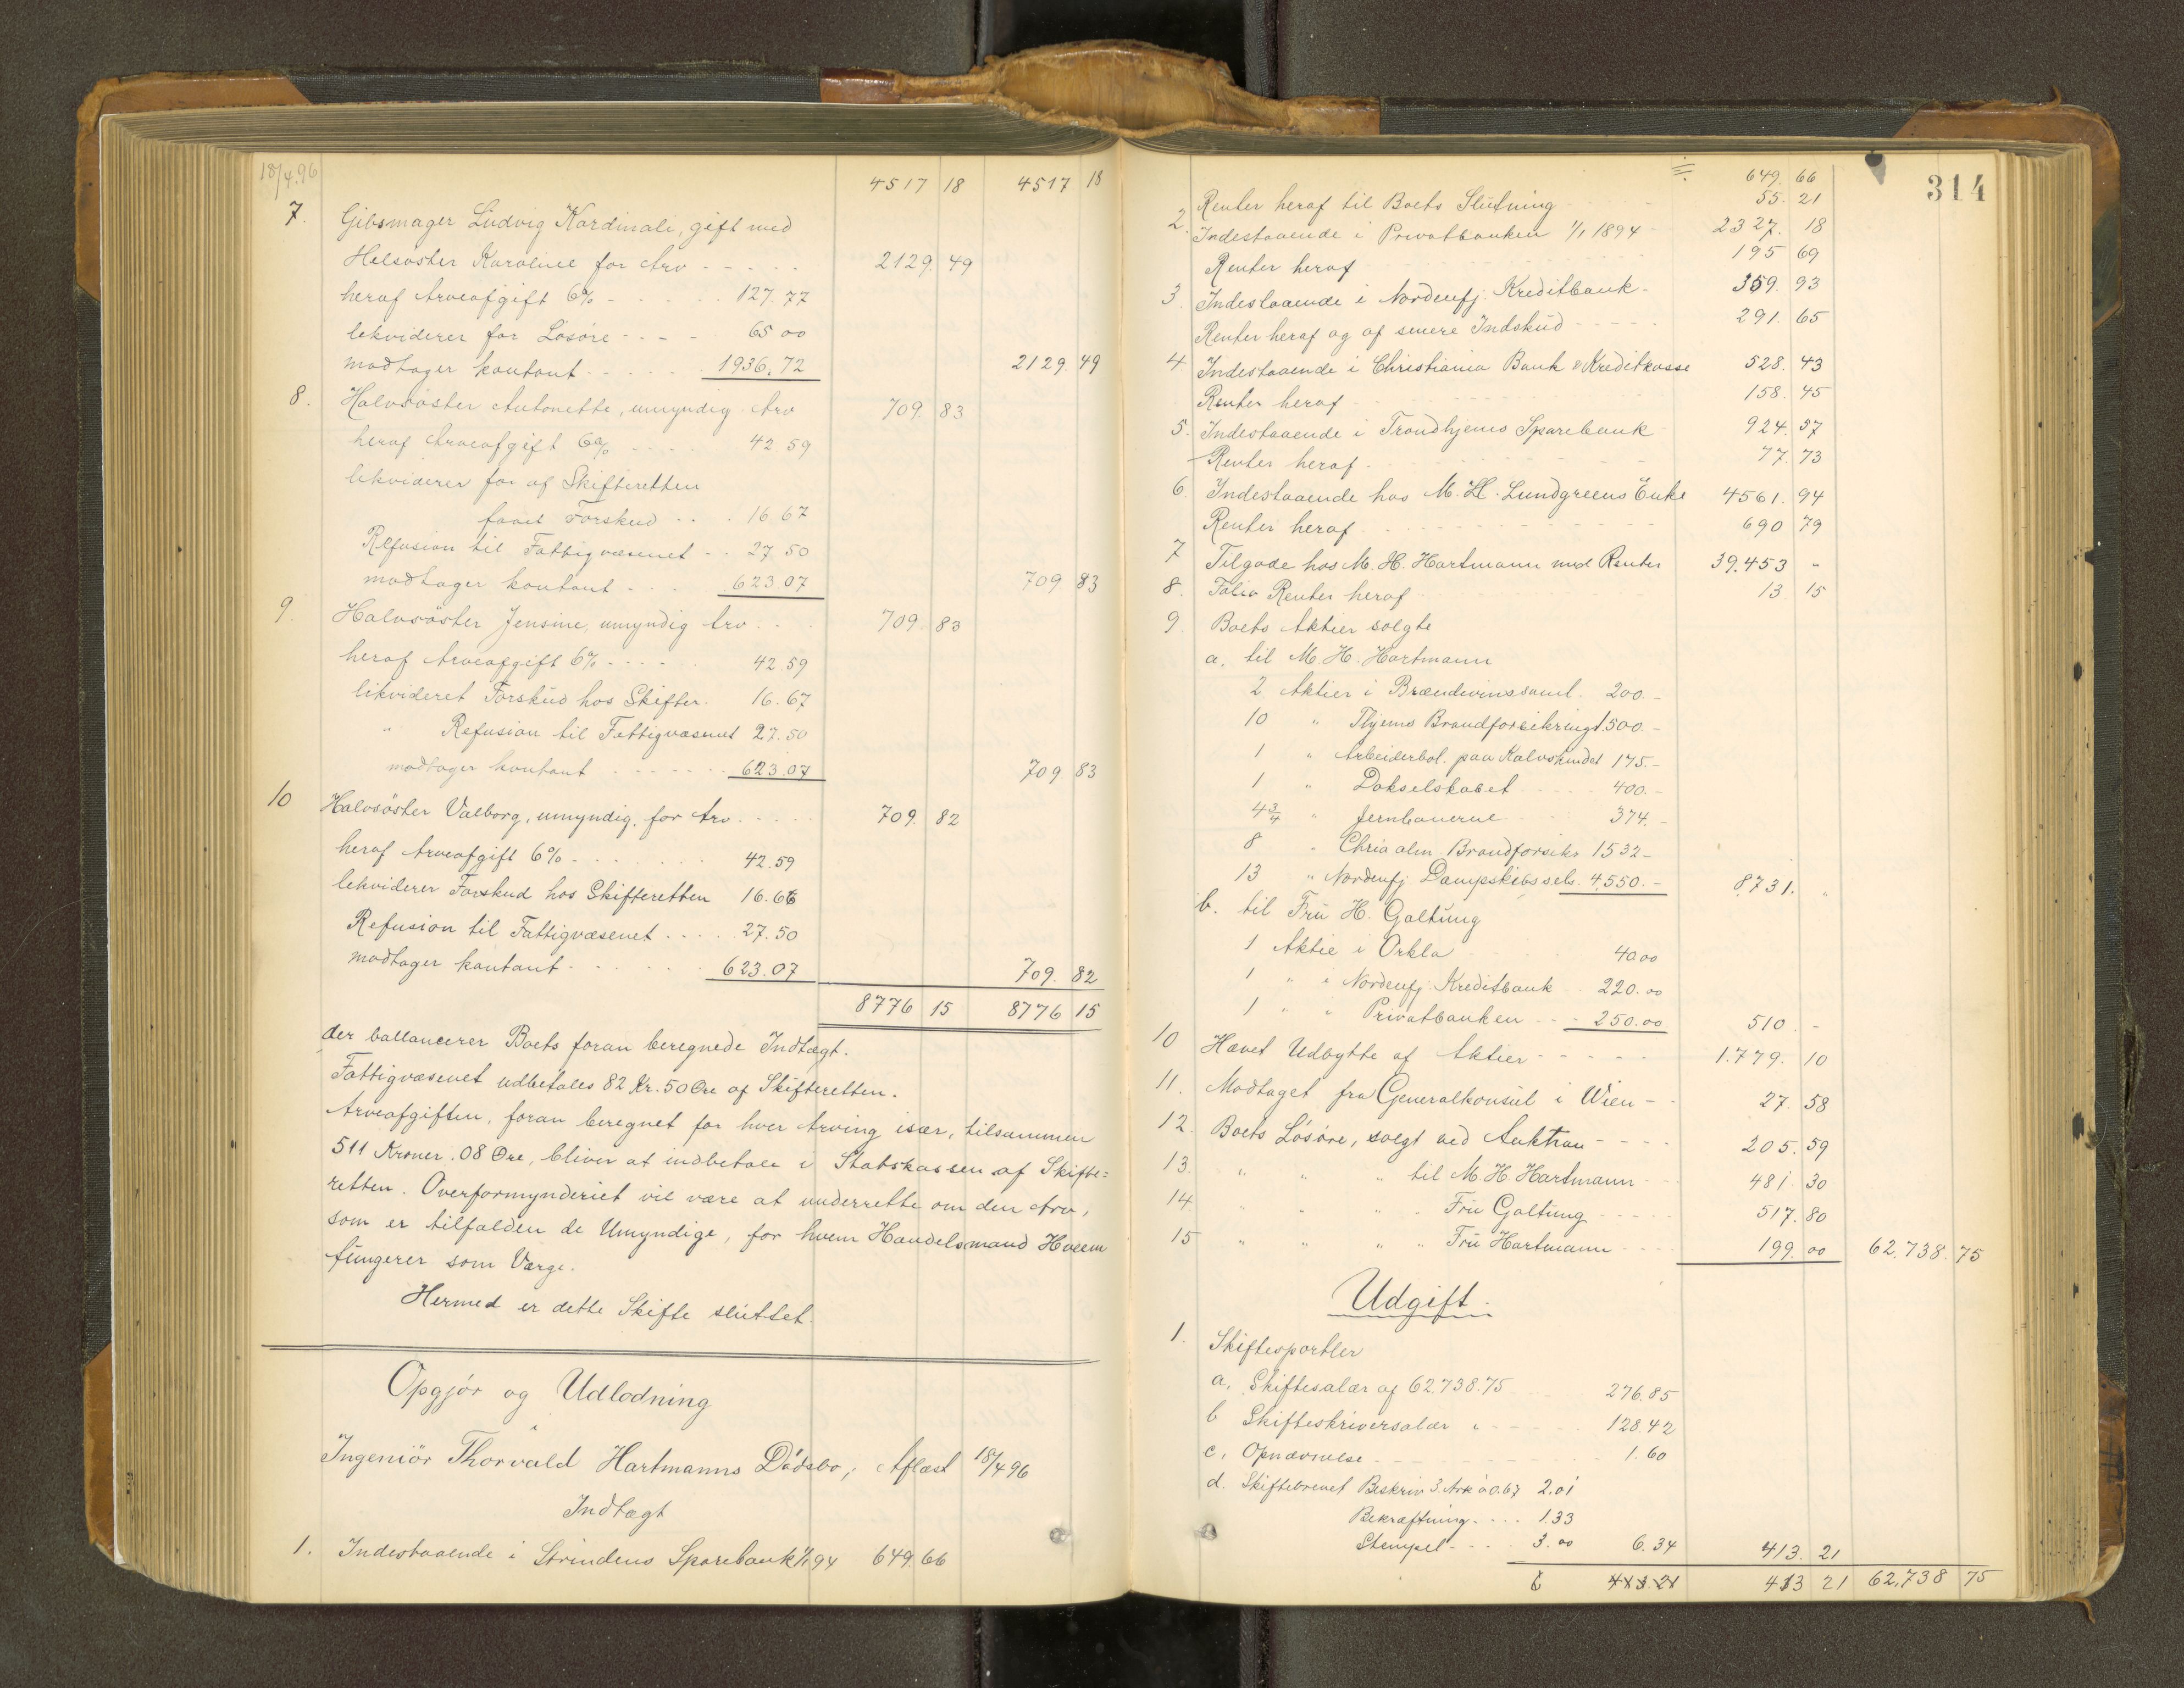 18/4.96
4517 18 4517 18
7. Gibsmager Ludvig Kardinali, gift med
Helsøster Karoline for Arv - - - - - 2129. 49
heraf Arveafgift 6% - - - - 127.77
likviderer for Løsøre - - - - 65 00
modtager kontant - - - - 1936.72 2129. 49
8. Halvsøster Antonette, umyndig Arv 709. 83
heraf Arveafgift 6% - - - - 42.59
likviderer for af Skifteretten
faaet Forskud - - - 16.67
Refusion til Fattigvæsenet - - 27.50
modtager kontant - - - 623 07 709 83
9. Halvsøster Jensine, umyndig Arv - - 709 83
heraf Arveafgift 6% - - - - 42.59
likvideret Forskud hos Skifter. 16.67
" Refusion til Fattigvæsenet 27.50
modtager kontant - - - - - 623.07 709 83
10 Halvsøster Valborg, umyndig, for Arv - - - - 709. 82
heraf Arveafgift 6% - - - - - 42.59
likviderer Forskud hos Skifteretten 16.66
Refusion til Fattigvæsenet - - - - 27.50
modtager kontant - - - - - 623.07 709. 82
8776 15 8776 15
der ballancerer Boets foran beregnede Indtægt.
Fattigvæsenet udbetales 82 Kr. 50 Øre af Skifteretten.
Arveafgiften, foran beregnet for hver Arving især, tilsammen
511 Kroner. 08 Øre, bliver at indbetale i Statskassen af Skifte=
retten. Overformynderiet vil være at underrette om den Arv,
som er tilfalden de Umyndige, for hvem Handelsmand Hveem
fungerer som Værge.
Hermed er dette Skifte sluttet.
Opgjør og Udlodning
i
Ingeniør Thorvald Hartmanns Dødsbo; Aflæst 18/4 96
Indtægt
1. Indestaaende i Strindens Sparebank 1/1 94 649.66
314
649. 66
Renter heraf til Boets Slutning 55. 21
2. Indestaaende i Privatbanken 1/1 1894 2327. 18
Renter heraf 195 69
3. Indestaaende i Nordenfj. Kreditbank - 359. 93
Renter heraf og af senere Indskud - - - - 291. 65
4. Indestaaende i Christiania Bank & Kreditkasse 528. 43
Renter heraf 158. 45
5. Indestaaende i Trondhjems Sparebank 924. 57
Renter heraf - - - - 77. 73
6. Indestaaende hos M. H. Lundgreens Enke 4561. 94
Renter heraf - - - - 690 79
7 Tilgode hos M. H. Hartmann med Renter 39.453 -
8. Folio Renter heraf 13 15
9. Boets Aktier solgte
a. til M. H. Hartmann
2 Aktier i Brændevinssaml. 200. -
10 " Thjems Brandforsikring 1500. -
1 " Arbeiderbol. paa Kalvskindet 175. -
1 " Dokselskabet - - - 400. -
4 3/4 " Jernbanerne - - 374. -
8 " Chria alm. Brandforsikr 1532 -
13 " Nordenfj. Dampskibssels. 4,550. - 8731. "
b. til Fru H. Galtung
1 Aktie i Orkla 40.00
1 " i Nordenfj. Kreditbank 220.00
1 " " Privatbanken - - - 250.00 510. -
10 Hævet Udbytte af Aktier - - - - - 1.779. 10
11. Modtaget fra Generalkonsul i Wien - - 27. 58
12. Boets Løsøre, solgt ved Auktion - - - - 205. 59
13. " " " til M. H. Hartmann - - 481. 30
14. " " " " Fru Galtung - - - - 517. 80
15 " " " " Fru Hartmann - - - 199. 00 62.738. 75
Udgift.
1. Skiftesportler
a. Skiftesalær af 62.738.75 - - - 276.85
b Skifteskriversalær " - - - - 128.42
c. Opnævnelse - - - - 1.60
d. Skiftebrevet Beskriv 3 Ark à 0.67 2.01
Bekræftning - - - - 1.33
Stempel - - - - 3.00 6.34 413. 21
413.21 413 21 62.738 75